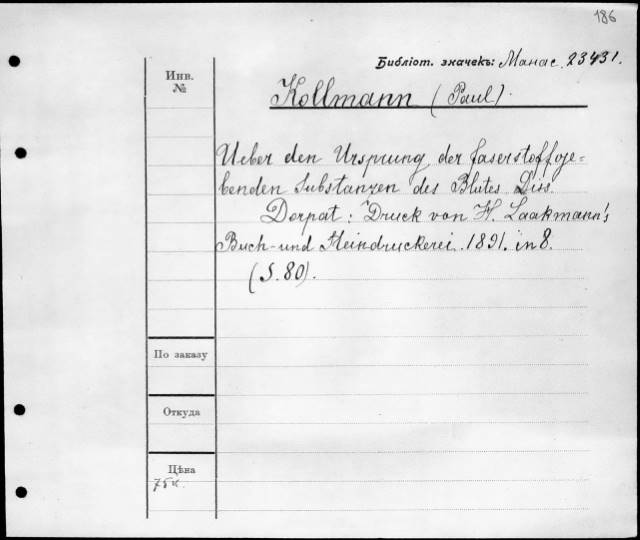 186
Библіот. значекъ: Манас. 23431.
Инв.
№
Kollmann (Paul).
Ueber den Ursprung der faserstoffge=
benden Substanzen des Blutes Diss.
Dorpat: Druck von H. Laakmann's
Buch- und Steindruckerei. 1891. in 8.
(S. 80).
По заказу
Откуда
Цѣна
75 к.